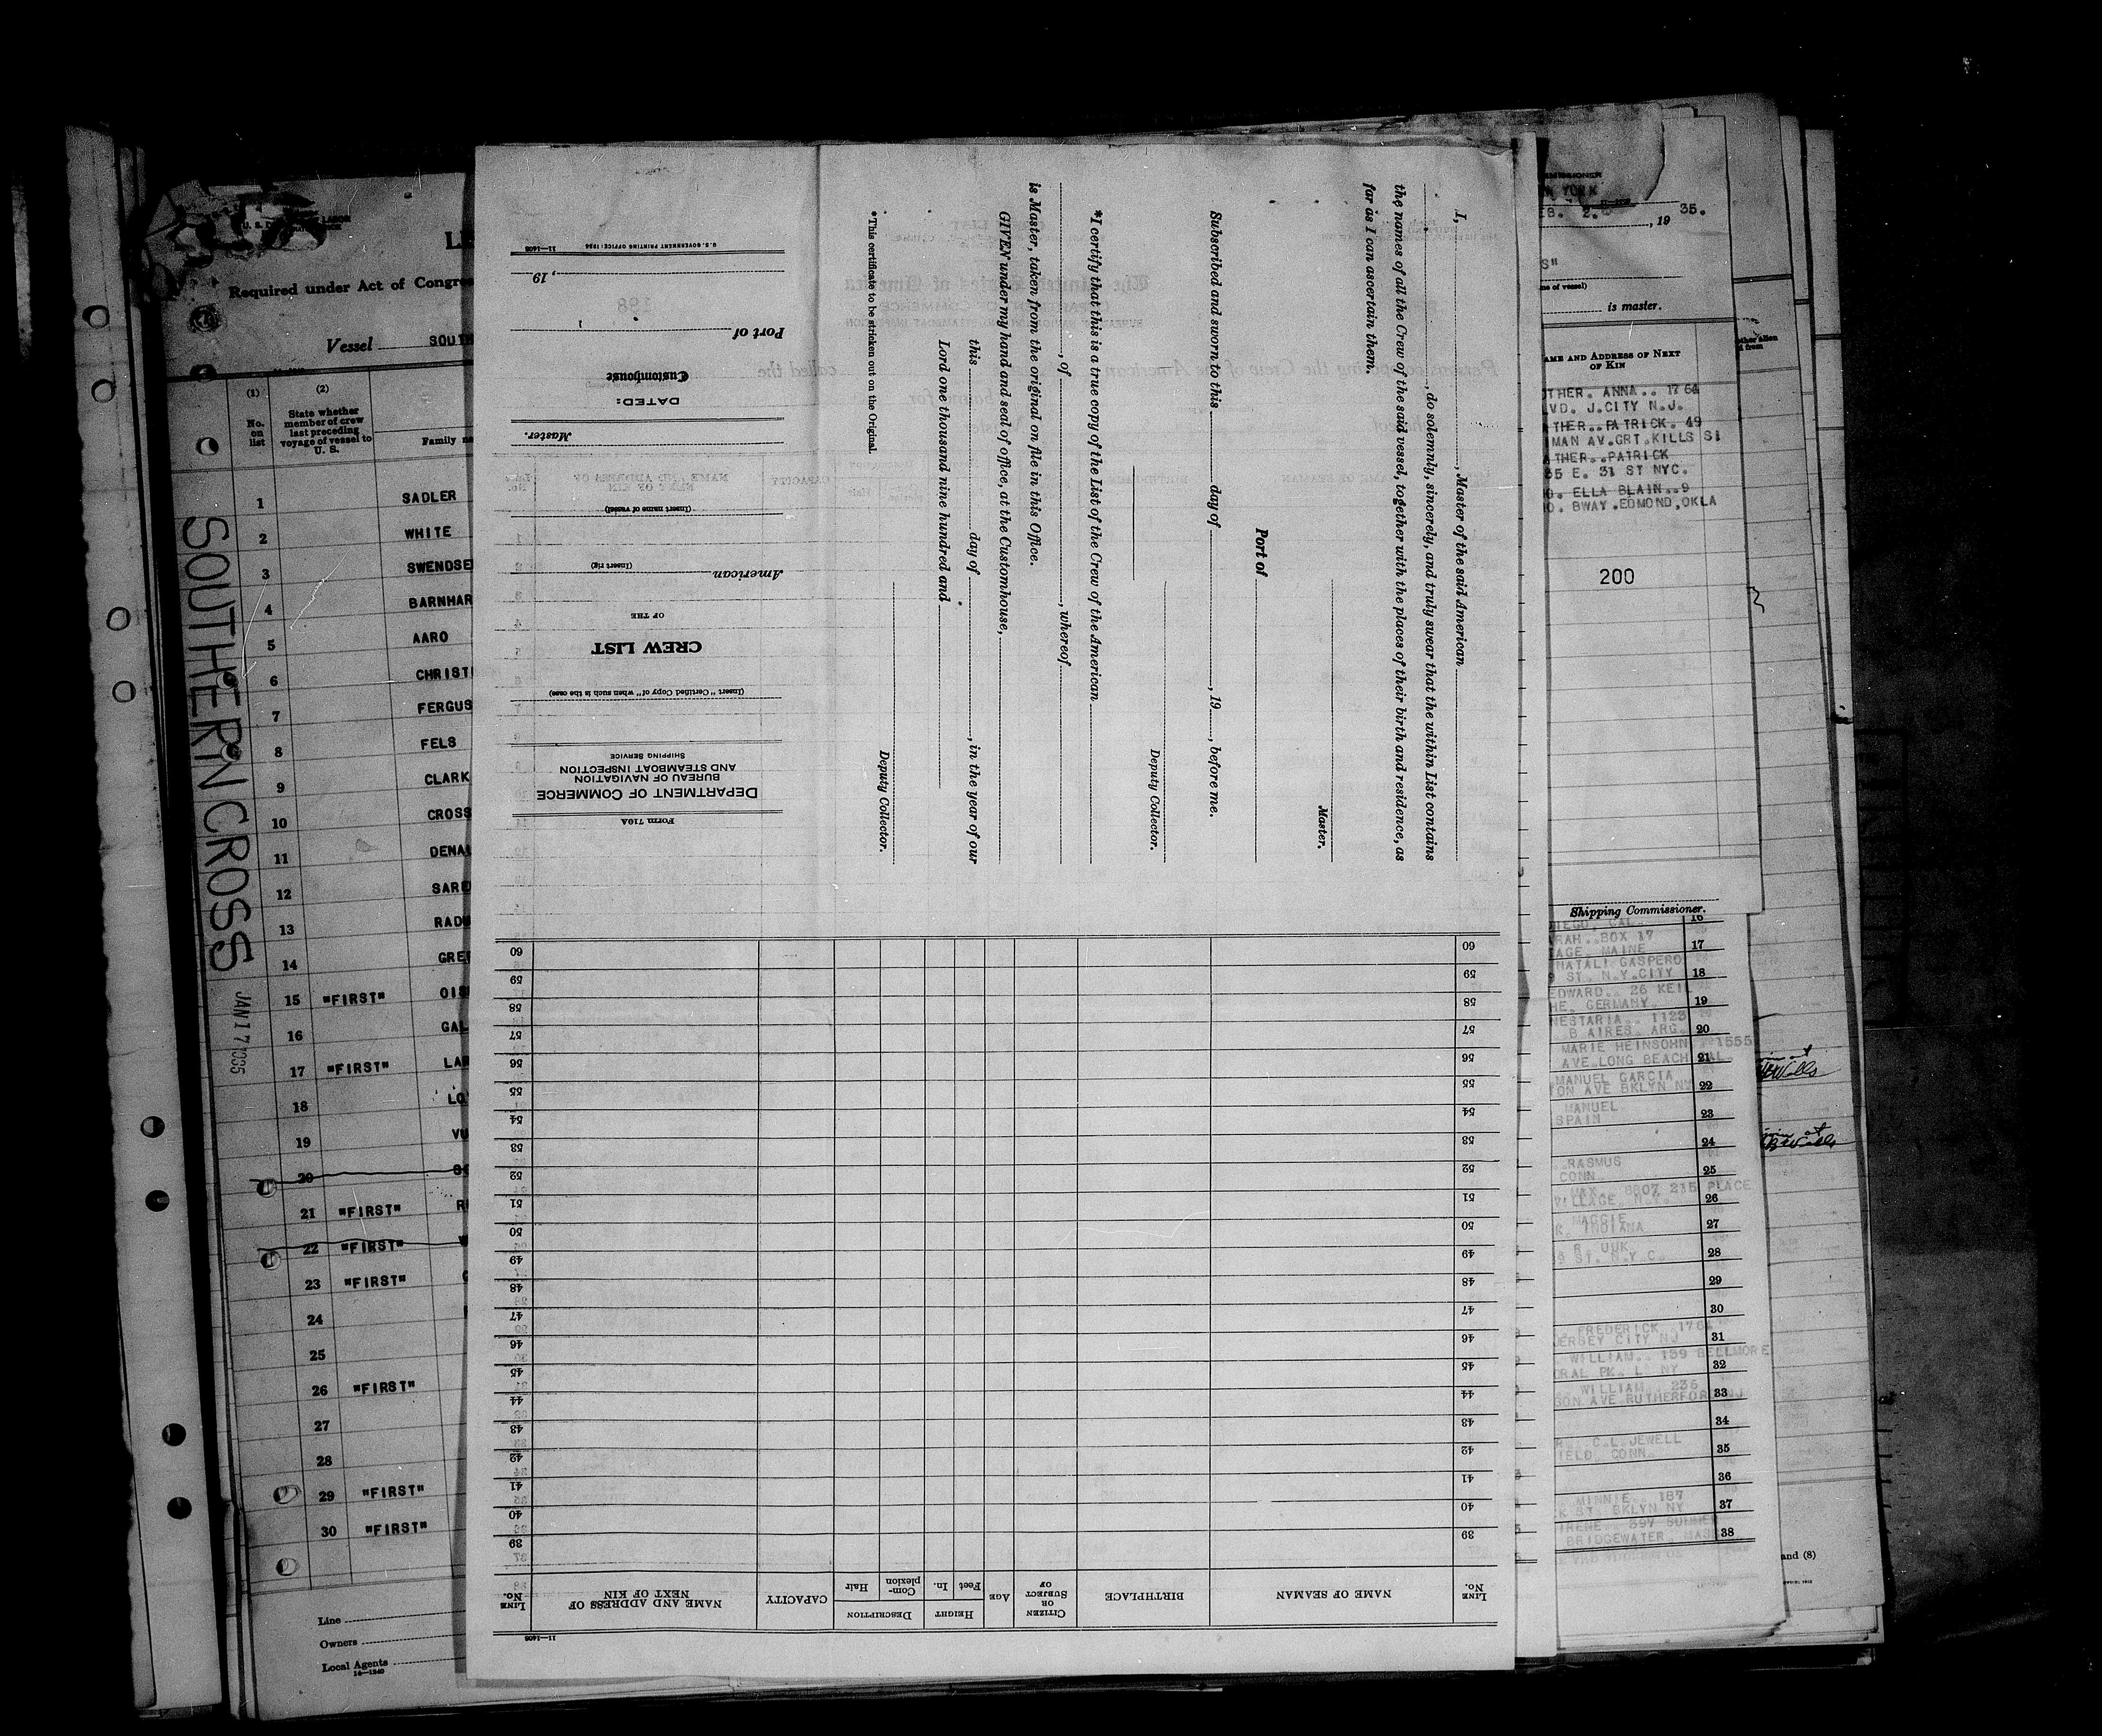 U. S. D
LABOR
Required under Act of Congre
Vessel SOUTH
(1)
(2)
No. on list
State whether member of crew last preceding voyage of vessel to U. S.
Family na
1 SADLER
2 WHITE
3 SWENDSE
4 BARNHAR
5 AARO
6 CHRISTI
7 FERGUS
8 FELS
9 CLARK
10 CROSS
11 DENA
12 SAR
13 RAD
14 GRE
15 "FIRST" OIS
16 GAL
17 "FIRST" LA
18 LO
19 VU
20
21 "FIRST" R
22 "FIRST"
23 "FIRST"
24
25
26 "FIRST"
27
28
29 "FIRST"
30 "FIRST"
Line
Owners
Local Agents
16—1240
SOUTHERN CROSS
JAN 17 1935
Form 710A
DEPARTMENT OF COMMERCE
BUREAU OF NAVIGATION
AND STEAMBOAT INSPECTION
SHIPPING SERVICE
(Insert "Certified Copy of" when such is the case)
CREW LIST
OF THE
American
(Insert rig)
(Insert name of vessel)
Master.
DATED:
Customhouse
Port of
, 19
U.S. GOVERNMENT PRINTING OFFICE: 1934
11—1408
I, , Master of the said American
, do solemnly, sincerely, and truly swear that the within List contains
the names of all the Crew of the said vessel, together with the places of their birth and residence, as
far as I can ascertain them.
Master.
Port of
Subscribed and sworn to this day of , 19 , before me.
Deputy Collector.
*I certify that this is a true copy of the List of the Crew of the American
, of , whereof
is Master, taken from the original on file in this Office.
GIVEN under my hand and seal of office, at the Customhouse,
this day of , in the year of our
Lord one thousand nine hundred and
Deputy Collector.
*This certificate to be stricken out on the Original.
11—1408
LINE No.
NAME OF SEAMAN
BIRTHPLACE
CITIZEN OR SUBJECT OF
AGE
HEIGHT
Feet
In.
DESCRIPTION
Complexion
Hair
CAPACITY
NAME AND ADDRESS OF NEXT OF KIN
LINE No.
39 39
40 40
41 41
42 42
43 43
44 44
45 45
46 46
47 47
48 48
49 49
50 50
51 51
52 52
53 53
54 54
55 55
56 56
57 57
58 58
59 59
60 60
YORK
, 19 35.
S"
is master.
AME AND ADDRESS OF NEXT
OF KIN
THER. ANNA.. 1764
LVD. J.CITY N.J.
THER..PATRICK. 49
MAN AV.GRT.KILLS SI
ATHER..PATRICK
35 E. 31 ST NYC.
O. ELLA BLAIN..9
O. BWAY.EDMOND,OKLA
200
Shipping Commissioner.
16
RAH..BOX 17
AGE MAINE 17
NATALI GASPERO
ST. N.Y.CITY 18
EDWARD.. 26 KEIL
HE, GERMANY. 19
NESTARIA.. 1123
B AIRES. ARG. 20
MARIE HEINSOHN 1555
AVE LONG BEACH CAL. 21
MANUEL GARCIA
TON AVE BKLYN NY 22
MANUEL
SPAIN 23
24
RASMUS
CONN. 25
8807 215 PLACE
VILLAGE, N.Y. 26
MAGGIE
INDIANA 27
ST. N.Y.C. 28
29
30
FREDERICK 1764
ERSEY CITY NJ 31
WILLIAM.. 159 BELLMORE
ORAL PK. L NY 32
WILLIAM.. 236
SON AVE RUTHERFOR NJ 33
34
C.L.JEWELL
IELD CONN 35
36
MINNIE.. 187
ST. BKLYN NY 37
IRENE.. 597 SUMMER
BRIDGEWATER MASS 38
and (8)